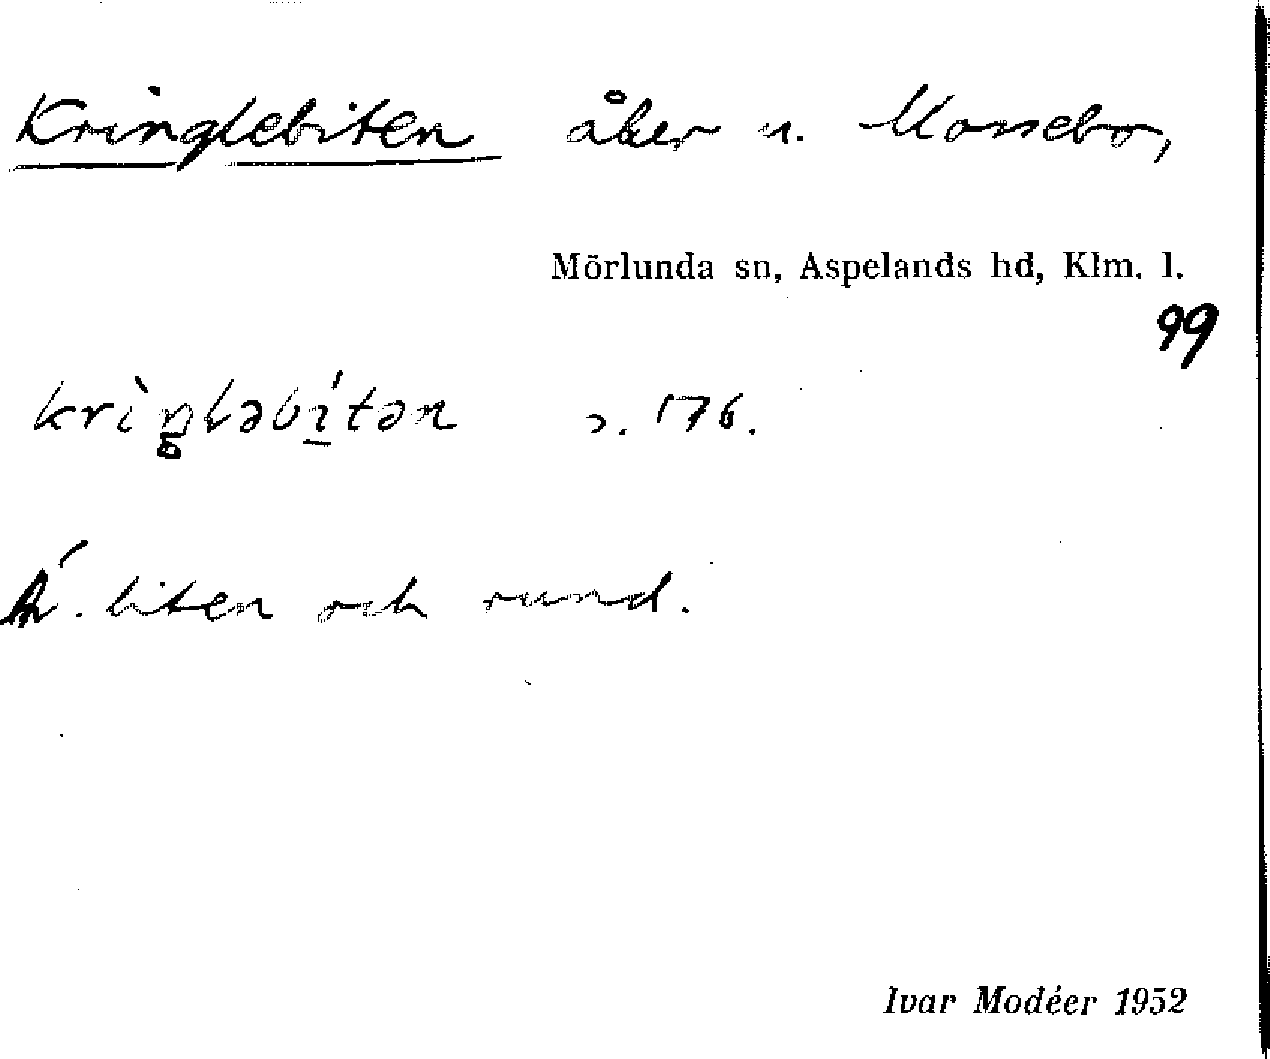 Kringlebiten åker u. Mossebo,
Mörlunda sn, Aspelands hd, Klm. l.
99
krìŋləbı̱́tən ɔ. 176.
Å. liten och rund.
Ivar Modéer 1952